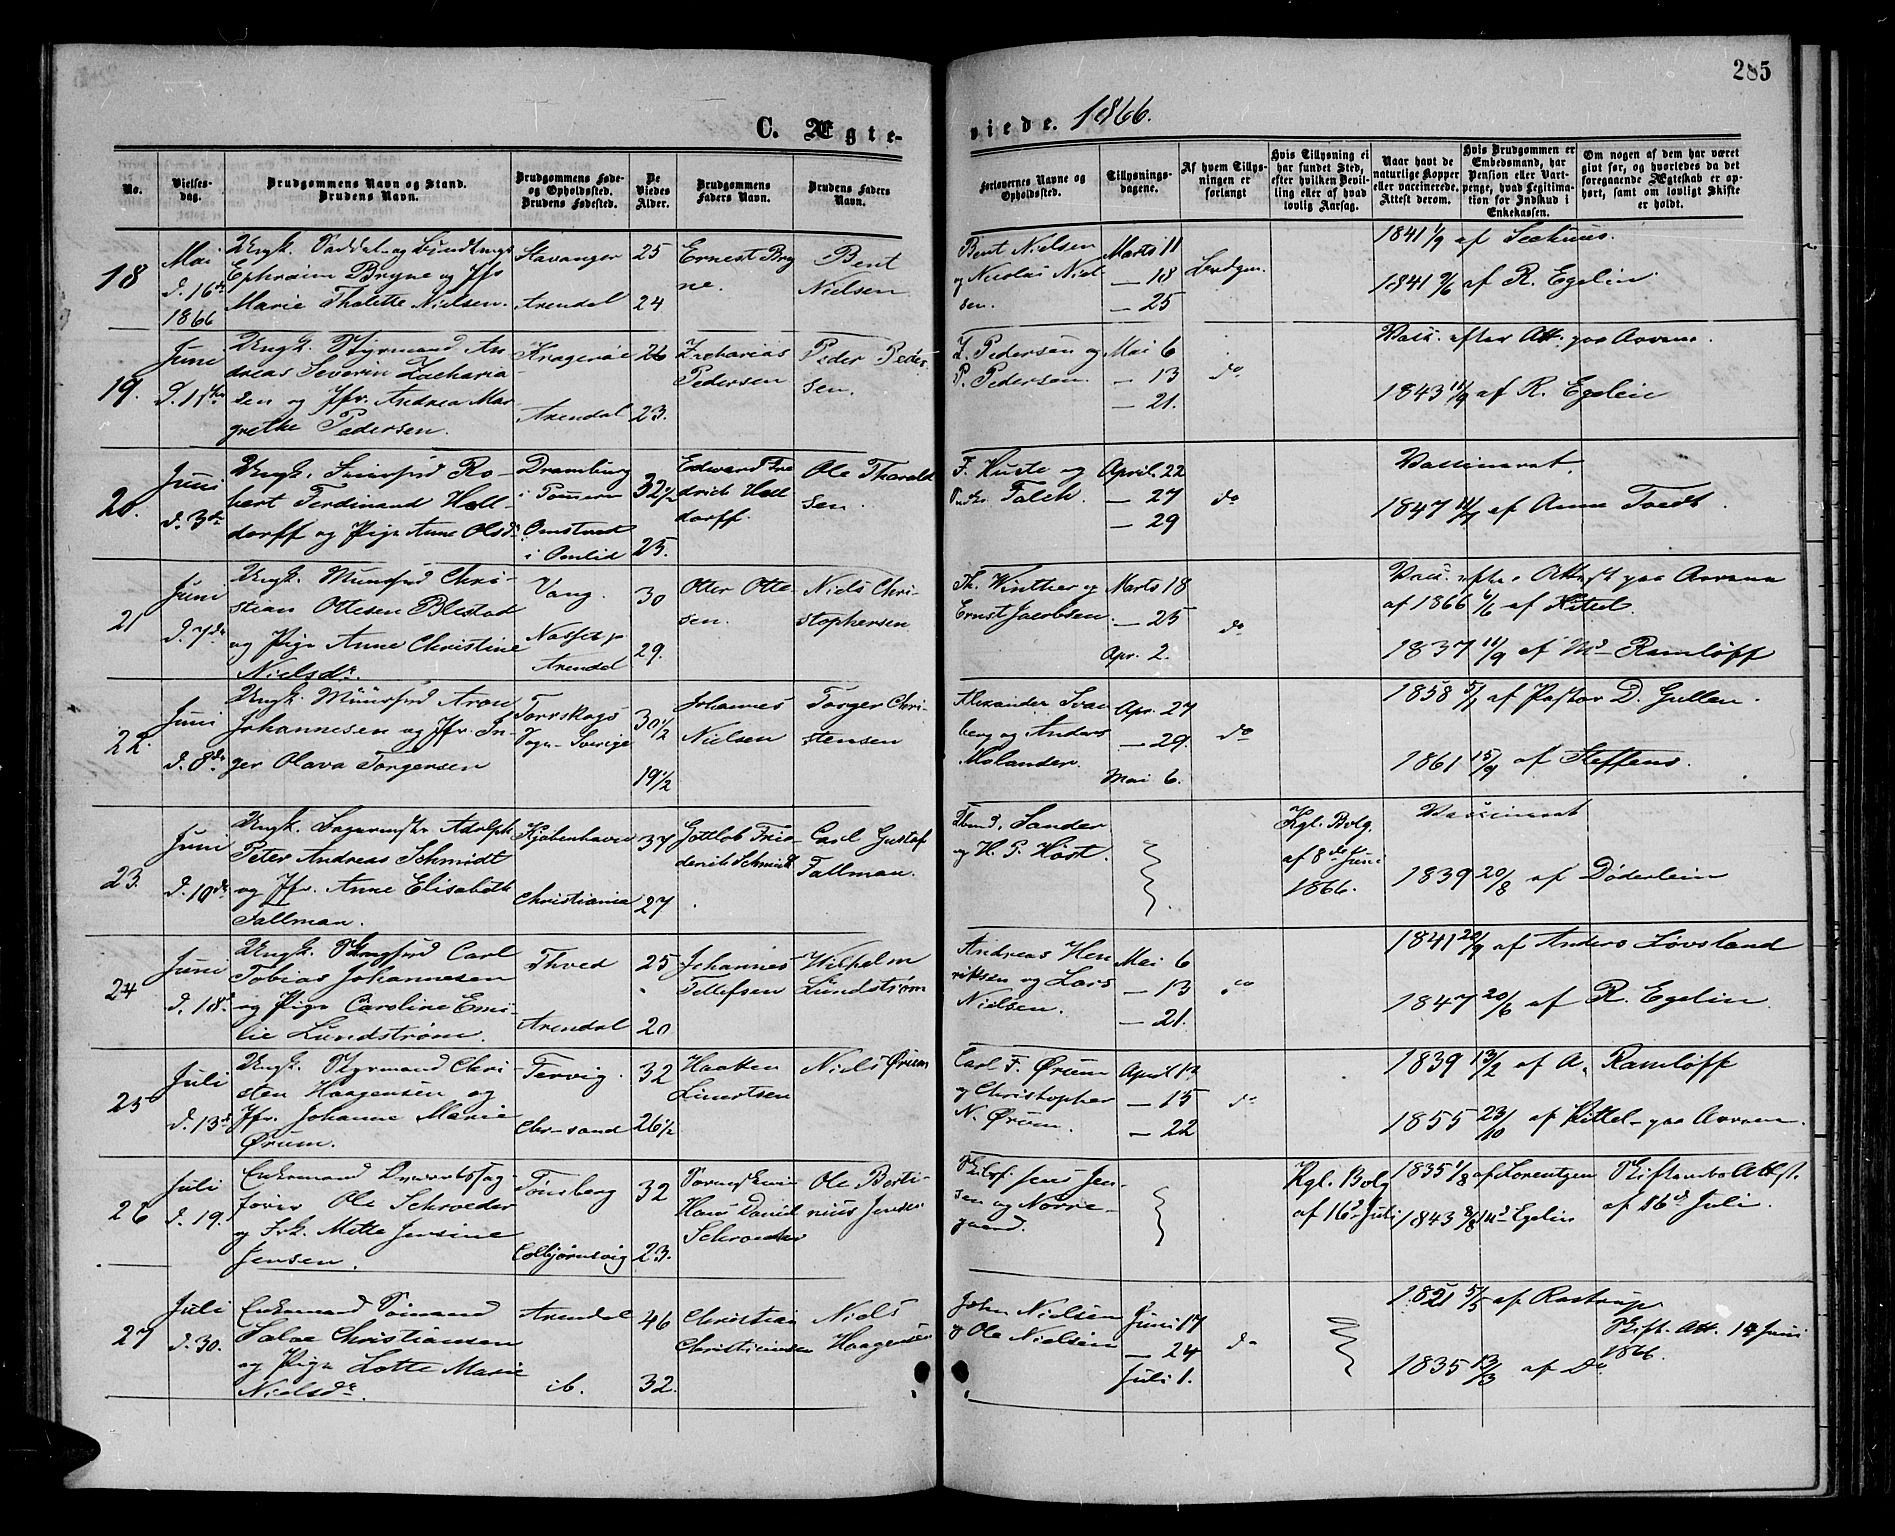 285
C. Ægte-
viede. 1866.
No.
Vielses-
dag.
Brudgommens Navn og Stand.
Brudens Navn.
Brudgommens Føde-
og Opholdssted.
Brudens Fødested.
De
Viedes
Alder.
Brudgommens
Faders Navn.
Brudens Faders
Navn.
Forlovernes Navne og
Opholdssted.
Tillysnings-
dagene.
Af hvem Tillys-
ningen er
forlangt
Hvis Tillysning ei
har fundet Sted,
efter hvilken Bevil-
ling eller af hvad
lovlig Aarsag.
Naar havt de
naturlige Kopper
eller vaccinerede.
Attest derom.
Hvis Brudgommen er
Embedsmand, har
Pension eller Vart-
penge, hvad Legitima-
tion for Indskud i
Enkekassen.
Om nogen af dem har været
givt før, og hvorledes da det
foregaaende Ægteskab er op-
hørt, samt om lovligt Skifte
er holdt.
18
Mai
d. 16de
1866
Ungk.
Ephraim Bryne og Jfr
Marie Thalette Nielsen.
Stavanger
Arendal
25
24
Ernest Bry
ne.
Bent
Nielsen
Bent Nielsen
og Nicolai Niel
sen.
Marts 11
— 18
— 25
Brudgm.
1841 1/9 af Seehuus.
1841 9/6 af R. Egelin.
19.
Juni
d. 1ste
Ungk. Styrmand An
dreas Severin Zacharia-
sen og Jfr. Andrea Mar-
grethe Pedersen.
Kragerøe
Arendal
26
23.
Zacharias
Pedersen
Peder Peder
sen.
Z. Pedersen og
P. Pedersen.
Mai 6
— 13
— 21.
do
Vacc. efter Att. paa Aavene.
1843 11/9 af R. Egelin
20.
Juni
d. 3de
Ungk. Ro-
bert Ferdinand Hall-
dorff og Pige Anne Olsd.
Dramburg
i Pommern
Omstved
i Omlid
32 1/2
25.
Edward Fre
drich Hall
dorff.
Ole Tharald
sen.
F. Huste og
Falch.
April. 22
— 27
— 29
do
Vaccineret.
1847 11/7 af Anne Tvedt.
21
Juni
d. 7de
Ungk. Muursvd Chri-
stian Ottesen Blestad
og Pige Anne Christine
Nielsdr.
Vang.
Arendal
30
29.
Otter Otte
sen.
Niels Chri-
stophersen
Th. Winther og
Ernst Jacobsen.
Marts 18
— 25
Apr. 2.
do
Vacc. efter Attest paa Aavene
af 1866 6/6 af Kittel.
1837 11/9 af Md Ramløff
22.
Juni
d. 8de
Ungk. Muursvd Aron
Johannesen og Jfr. In-
ger Olava Torgersen
Torrskogs
Sogn Sverige
30 1/2
19 1/2
Johannes
Nielsen
Torger Chri-
stensen
Alexander Svan
berg og Anders
Molander.
Apr. 27
— 29.
Mai 6.
do
1858 5/7 af Pastor D. Gullen.
1861 15/9 af Steffens.
23.
Juni
d. 10de
Ungk. Adolph
Peter Andreas Schmidt
og Jfr. Anne Elisabeth
Fallman.
Kjøbenhavn
Christiania
37
27
Gottlob Frie
derich Schmidt
Carl Gustaf
Fallman.
Sander
og H. P. Høst.
Kgl. Bvlg.
af 8de Juni
1866.
Vaccineret
1839 20/8 af Døderlein
24
Juni
d. 18d
Ungk. Carl
Tobias Johannesen
og Pige Caroline Emi-
lie Lundstrøm.
Thved
Arendal
25
20
Johannes
Tellefsen
Wilhelm
Lundstrøm
Andreas Hen
riksen og Lars
Nielsen.
Mai 6
— 13
— 21.
do
1841 20/9 af Anders Løvsland
1847 20/6 af R. Egelin.
25
Juli
d. 13d
Ungk. Styrmand Chri-
sten Haagensen og
Jfr. Johanne Marie
Ørum.
Tervig.
Chr-sand
32
26 1/2
Haaken
Niels Ørum
Carl F. Ørum
og Christopher
N. Ørum.
April 12
— 15
— 22
do
1839 13/2 af A. Ramløff
1855 23/10 af Kittel paa Aavene.
26
Juli
d. 19.
Enkemand
fører Ole Schroeder
og Frk. Mette Jensine
Jensen.
Tønsberg
Colbjørnsvig
32
23.
Hans David
Schroeder
Ole Berti-
nius Jensen
Jens Jen-
sen og Norre-
gaard.
Kgl. Bvlg
af 16d Juli
1835 1/8 af Lorentzen
1843 Egelin
Skiftemts Attest.
af 16d Juli.
27
Juli
d. 30.
Enkemand Sømand
Salve Christiansen
og Pige Lotte Marie
Nielsdr.
Arendal
ib.
46
32.
Christian
Christiansen
Niels
Haagensen
John Nielsen
og Ole Nielsen
Juni 17
— 24
Juli 1.
do
1821 5/5 af Rastrup
1835 13/3 af Do
Skift. Att. 14 Juni
1866.